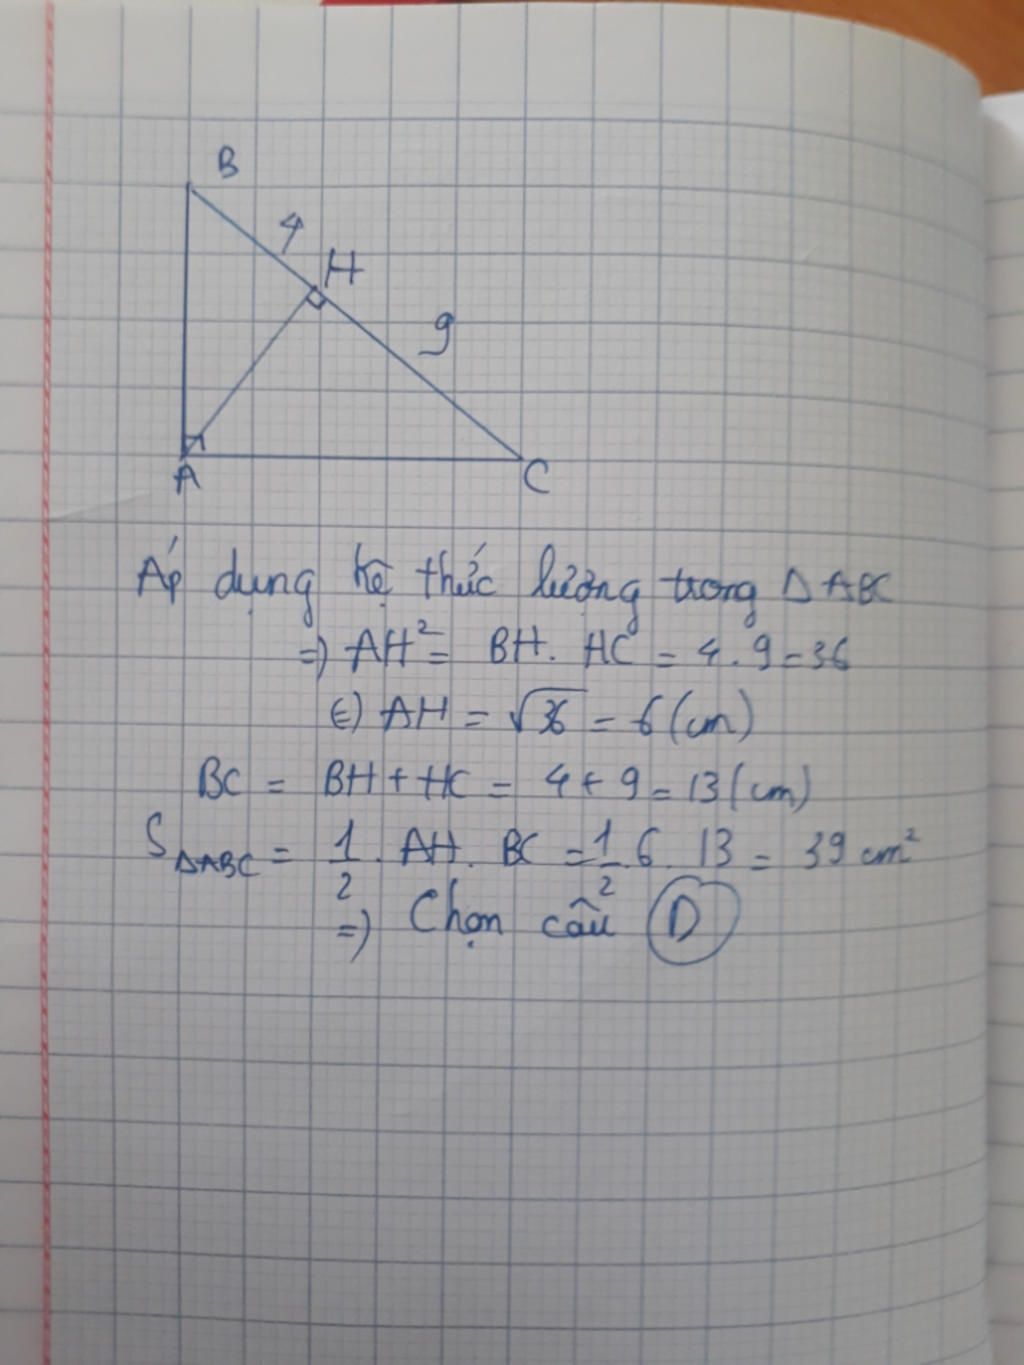 B
4
H
9
A
C
Áp dụng hệ thức lượng trong ΔABC
=) AH² = BH. HC = 4.9 = 36
(=) AH = √36 = 6 (cm)
BC = BH + HC = 4 + 9 = 13 (cm)
S ΔABC = 1/2 . AH. BC = 1/2 .6. 13 = 39 cm²
=) Chọn câu D